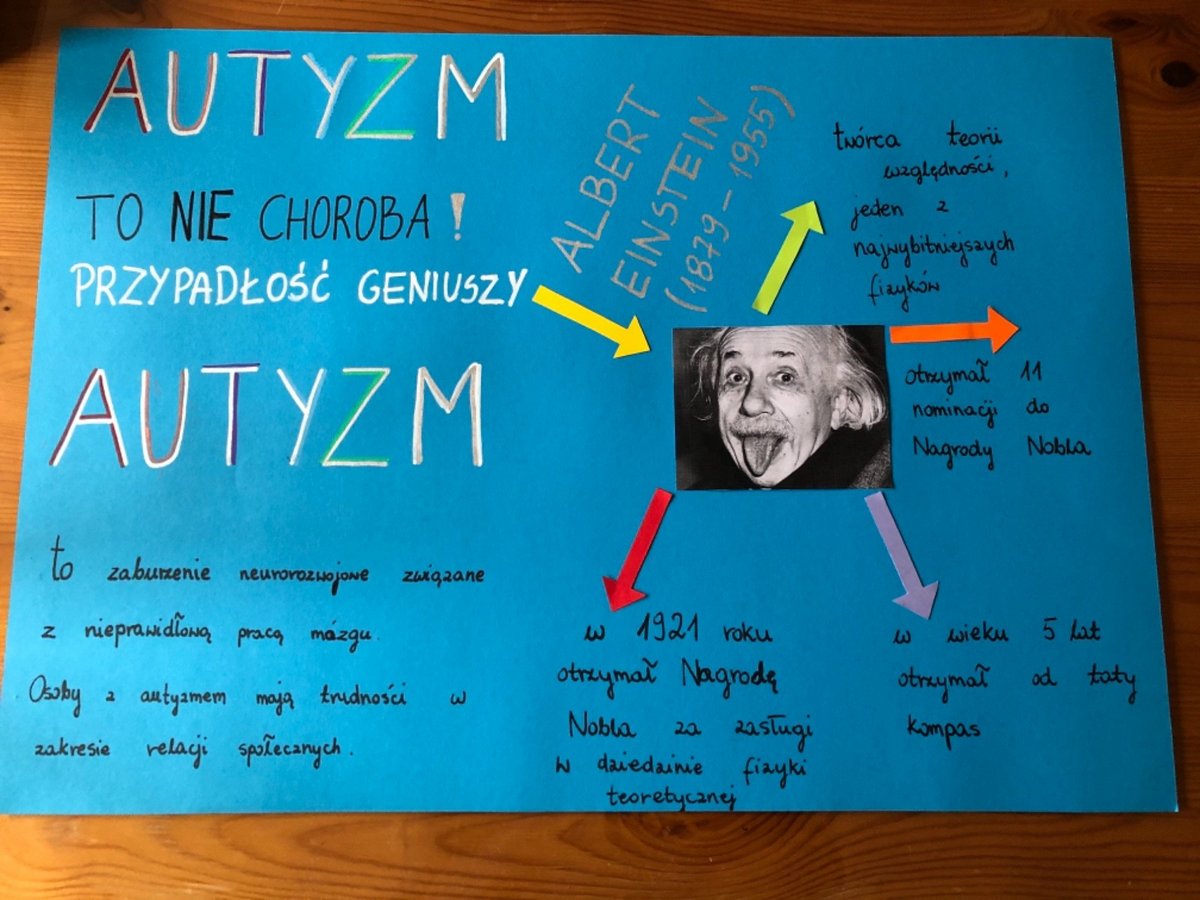 AUTYZM
TO NIE CHOROBA!
PRZYPADŁOŚĆ GENIUSZY
AUTYZM
to zaburzenie neurorozwojowe związane
z nieprawidłową pracą mózgu.
Osoby z autyzmem mają trudności w
zakresie relacji społecznych.
ALBERT
EINSTEIN
(1879-1955)
twórca teorii
względności,
jeden z
najwybitniejszych
fizyków
otrzymał 11
nominacji do
Nagrody Nobla
w 1921 roku
otrzymał Nagrodę
Nobla za zasługi
w dziedzinie fizyki
teoretycznej
w wieku 5 lat
otrzymał od taty
kompas